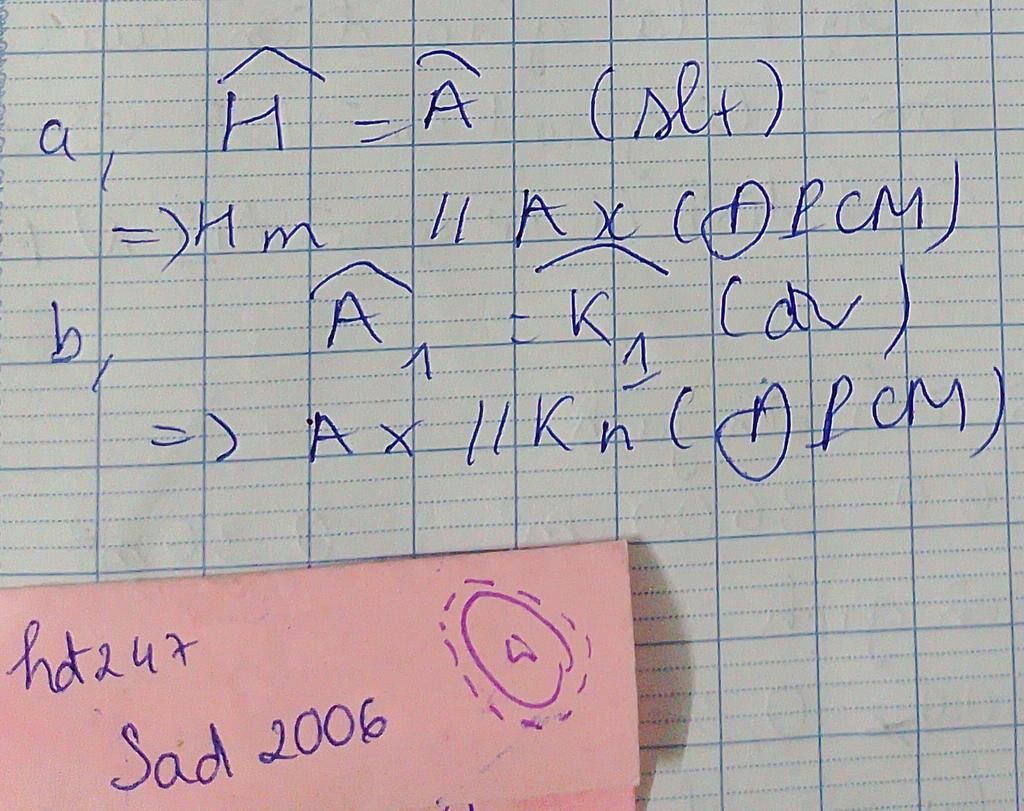 a, Ĥ = Â (slt)
=> Hm // Ax (ĐPCM)
b, Â₁ = K̂₁ (đv)
=> Ax // Kn (ĐPCM)
hdt247
Sad 2006